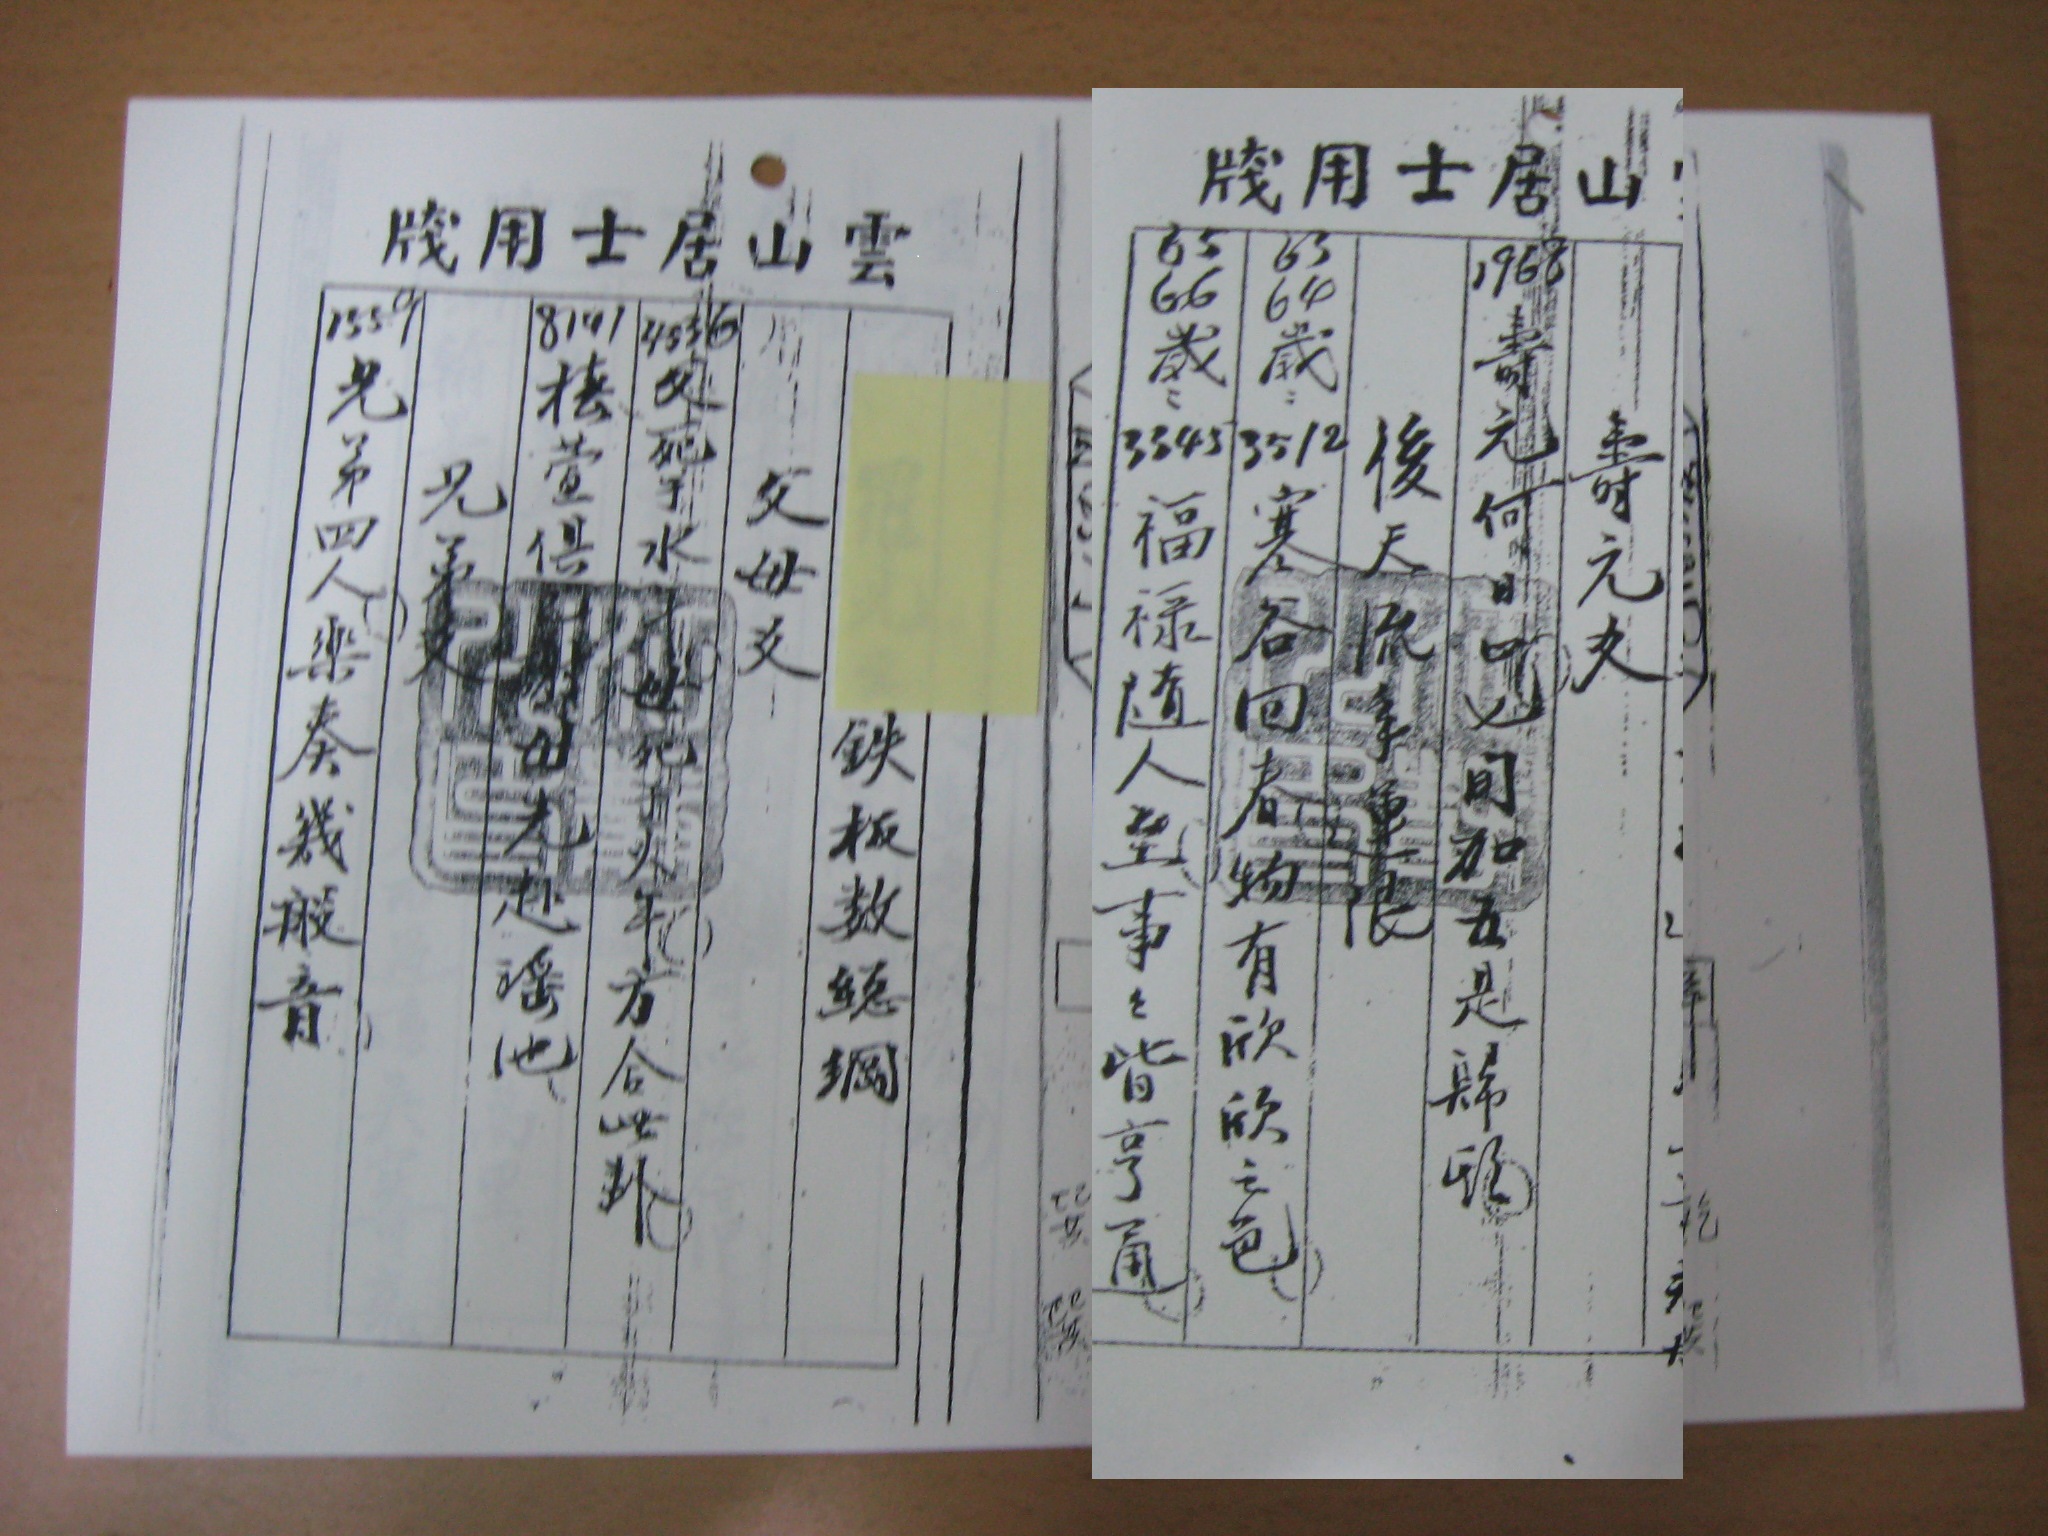 雲山居士用牋
鉄板数総綱
父母爻
4536 父死于水 母死于火年方合此卦
8741 椿萱俱 母先赴瑤池
兄弟爻
1559 兄弟四人樂奏幾般音
山居士用牋
壽元爻
1968 壽元何日 旬加五是歸期
後天流年運限
63 64歲: 3512 寒谷回春物有欣欣之色
65 66歲: 3345 福祿隨人至事々皆亨通